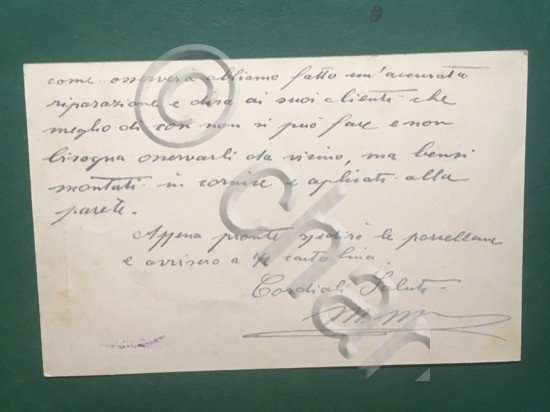 come osserverà abbiamo fatto un'accurata
riparazione e dirà ai suoi clienti che
meglio di così non si può fare e non
bisogna osservarli da vicino, ma bensì
montati in cornice e aplicati alla
parete.
Appena pronte spedirò le porcellane
e avviserò a 1/2 cartolina
Cordiali Saluti
©
char